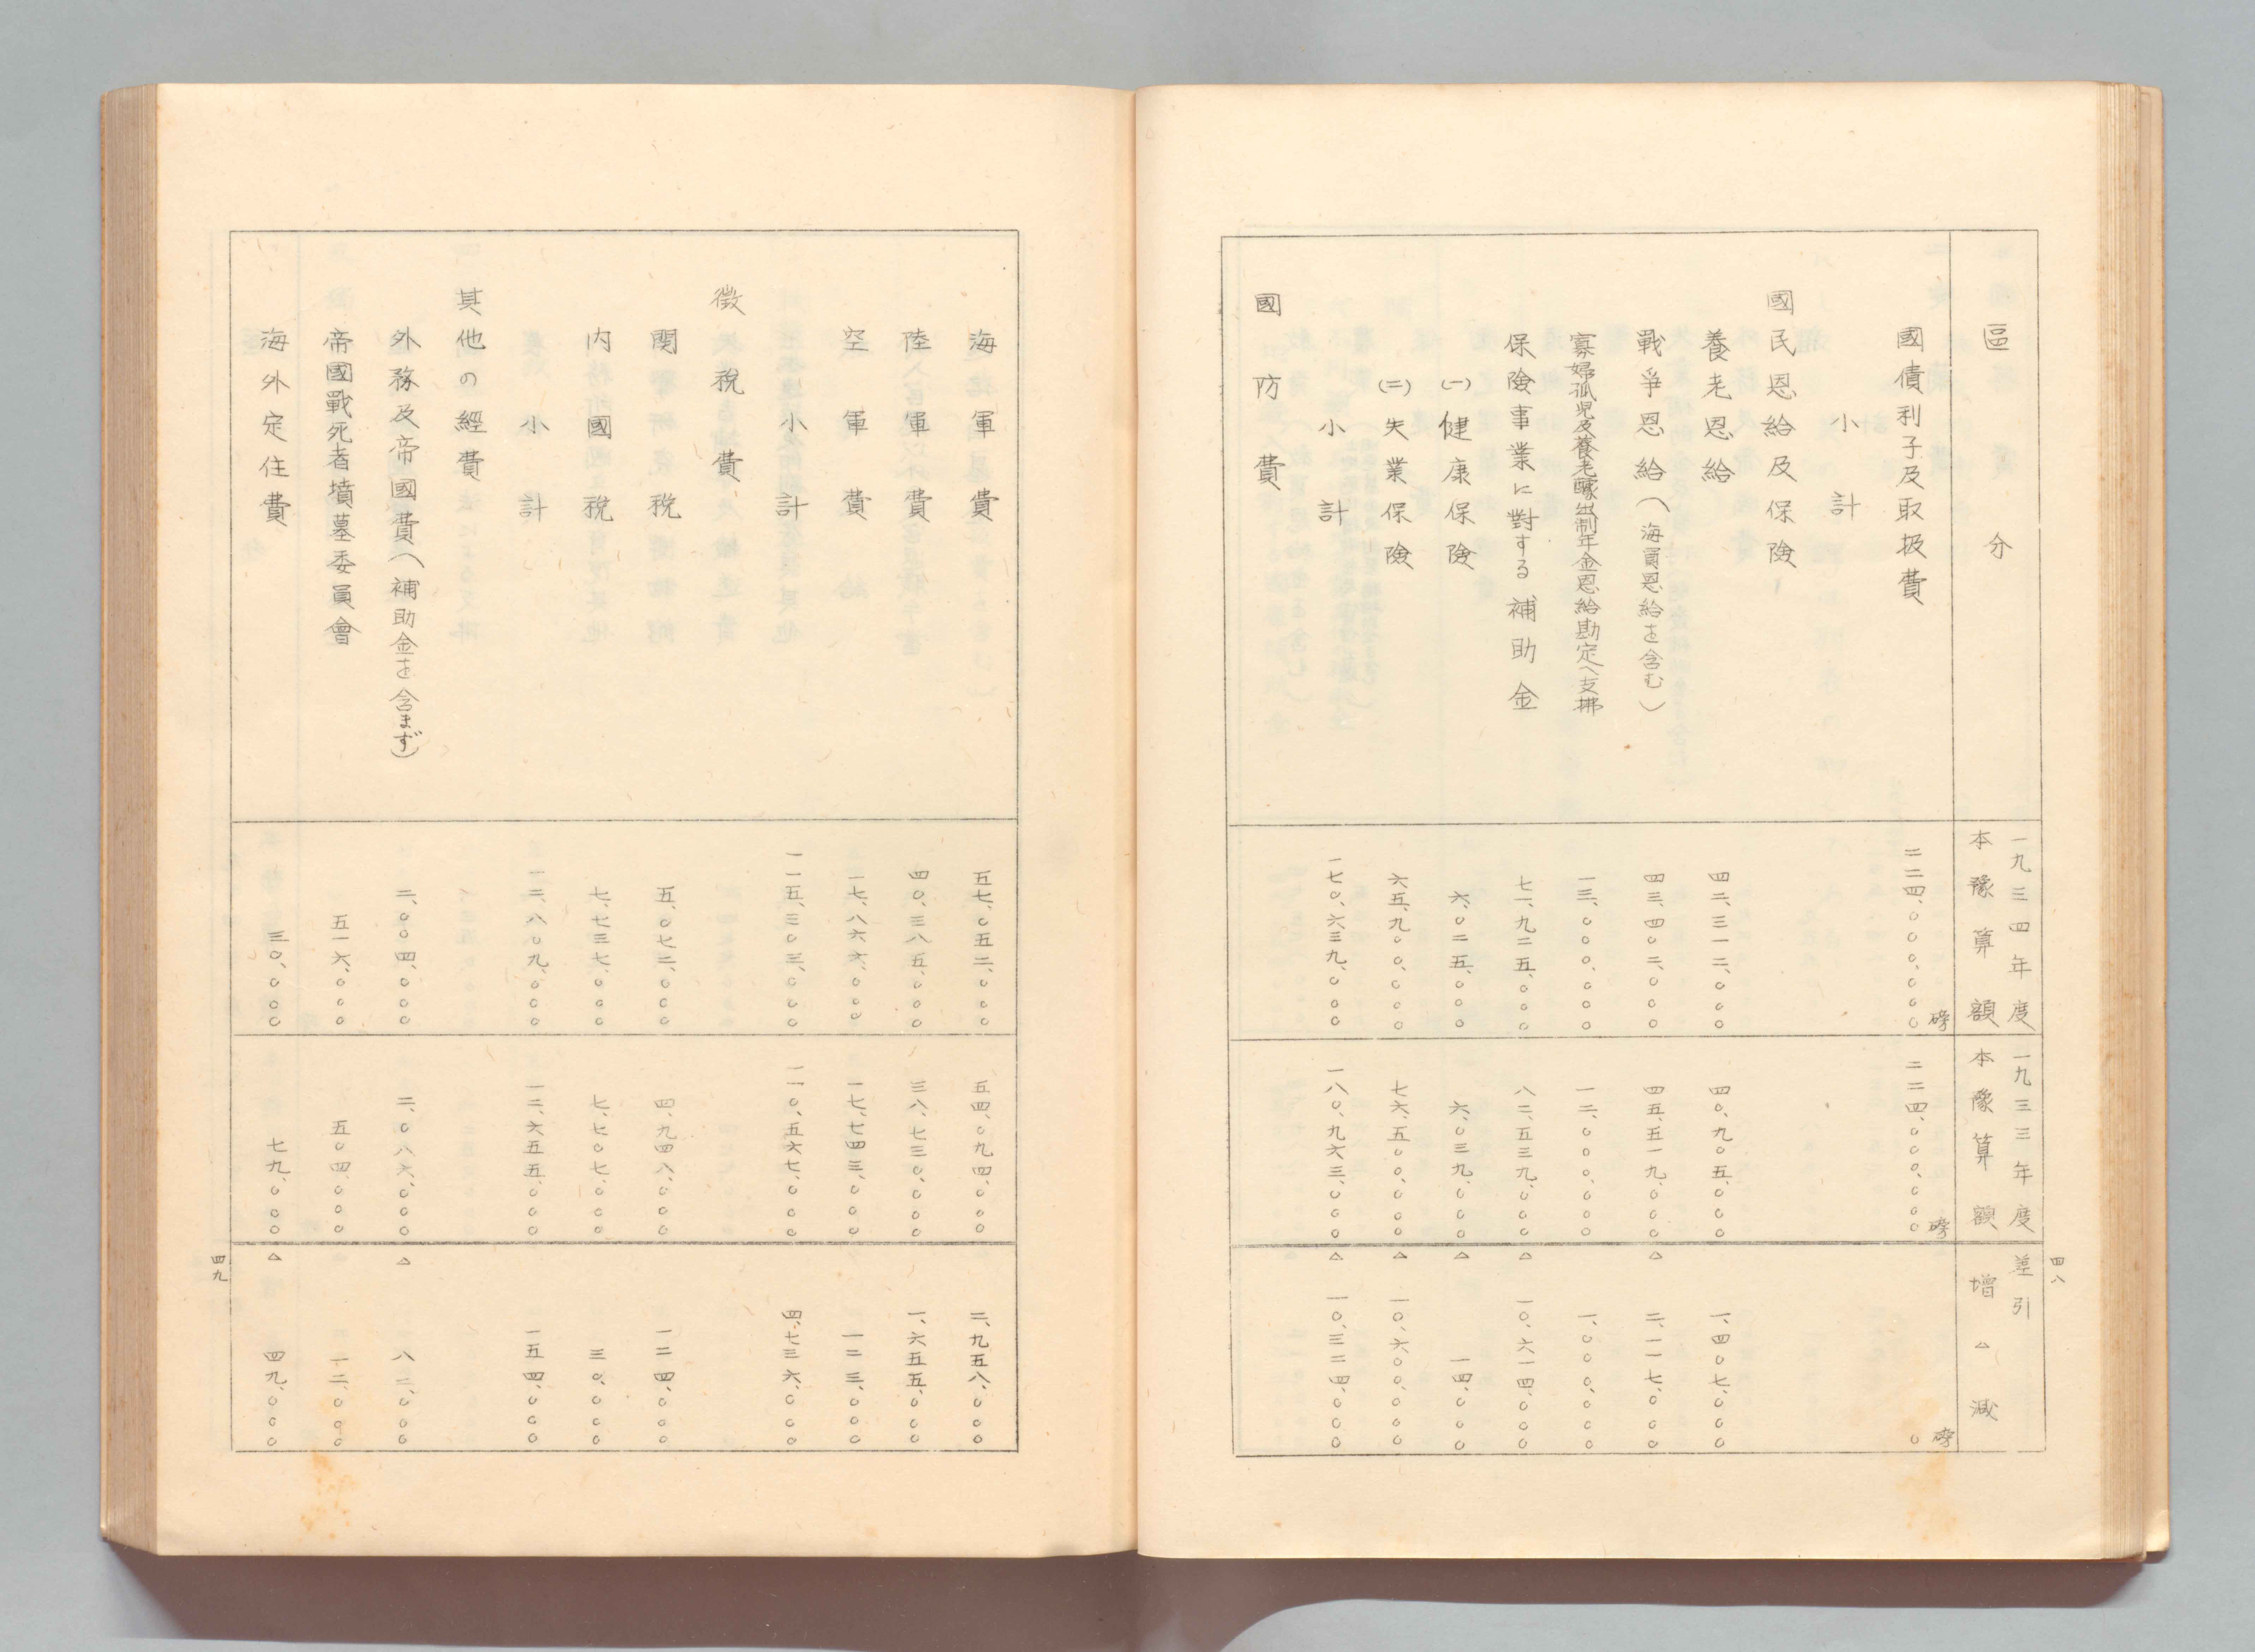 區分 一九三四年度本豫算額 一九三三年度本豫算額 差引増△減
國債利子及取扱費 二二四、〇〇〇、〇〇〇磅 二二四、〇〇〇、〇〇〇磅 〇磅
小計
國民恩給及保険
養老恩給 四二、三一二、〇〇〇 四〇、九〇五、〇〇〇 一、四〇七、〇〇〇
戰爭恩給(海員恩給を含む) 四三、四〇二、〇〇〇 四五、五一九、〇〇〇 △二、一一七、〇〇〇
寡婦孤児及養老醵出制年金恩給勘定へ支拂 一三、〇〇〇、〇〇〇 一二、〇〇〇、〇〇〇 一、〇〇〇、〇〇〇
保険事業に對する補助金 七一、九二五、〇〇〇 八二、五三九、〇〇〇 △一〇、六一四、〇〇〇
(一)健康保険 六、〇二五、〇〇〇 六、〇三九、〇〇〇 △一四、〇〇〇
(二)失業保険 六五、九〇〇、〇〇〇 七六、五〇〇、〇〇〇 △一〇、六〇〇、〇〇〇
小計 一七〇、六三九、〇〇〇 一八〇、九六三、〇〇〇 △一〇、三二四、〇〇〇
國防費
四八
海軍費 五七、〇五二、〇〇〇 五四、〇九四、〇〇〇 二、九五八、〇〇〇
陸軍費 四〇、三八五、〇〇〇 三八、七三〇、〇〇〇 一、六五五、〇〇〇
空軍費 一七、八六六、〇〇〇 一七、七四三、〇〇〇 一二三、〇〇〇
小計 一一五、三〇三、〇〇〇 一一〇、五六七、〇〇〇 四、七三六、〇〇〇
徴税費
関税 五、〇七二、〇〇〇 四、九四八、〇〇〇 一二四、〇〇〇
内國税 七、七三七、〇〇〇 七、七〇七、〇〇〇 三〇、〇〇〇
小計 一二、八〇九、〇〇〇 一二、六五五、〇〇〇 一五四、〇〇〇
其他の經費
外務及帝國費(補助金を含まず) 二、〇〇四、〇〇〇 二、〇八六、〇〇〇 △八二、〇〇〇
帝國戰死者墳墓委員會 五一六、〇〇〇 五〇四、〇〇〇 一二、〇〇〇
海外定住費 三〇、〇〇〇 七九、〇〇〇 △四九、〇〇〇
四九